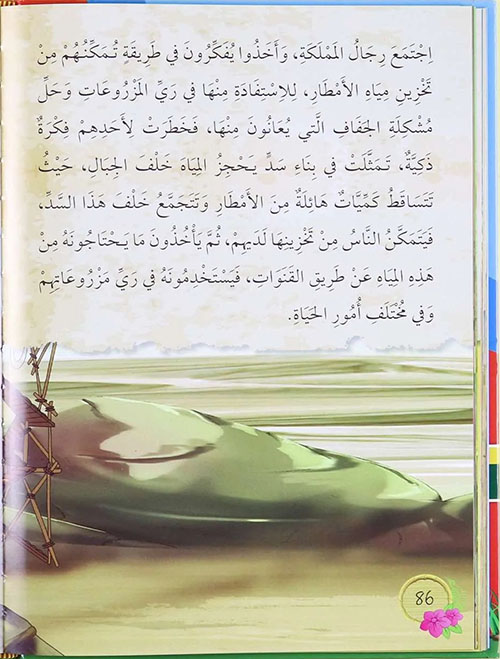 اِجْتَمَعَ رِجَالُ المَمْلَكَةِ، وَأَخَذُوا يُفَكِّرُونَ في طَرِيقَةٍ تُمَكِّنُهُمْ مِنْ
تَخْزِينِ مِيَاهِ الأَمْطَارِ، لِلِاسْتِفَادَةِ مِنْهَا في رَيِّ المَزْرُوعَاتِ وَحَلِّ
مُشْكِلَةِ الجَفَافِ الَّتي يُعَانُونَ مِنْهَا، فَخَطَرَتْ لِأَحَدِهِمْ فِكْرَةٌ
ذَكِيَّةٌ، تَمَثَّلَتْ في بِنَاءِ سَدٍّ يَحْجِزُ المِيَاهَ خَلْفَ الجِبَالِ، حَيْثُ
تَتَسَاقَطُ كَمِّيَّاتٌ هَائِلَةٌ مِنَ الأَمْطَارِ وَتَتَجَمَّعُ خَلْفَ هَذَا السَّدِّ،
فَيَتَمَكَّنُ النَّاسُ مِنْ تَخْزِينِهَا لَدَيْهِمْ، ثُمَّ يَأْخُذُونَ مَا يَحْتَاجُونَهُ مِنْ
هَذِهِ المِيَاهِ عَنْ طَرِيقِ القَنَوَاتِ، فَيَسْتَخْدِمُونَهُ في رَيِّ مَزْرُوعَاتِهِمْ
وَفي مُخْتَلَفِ أُمُورِ الحَيَاةِ.
86